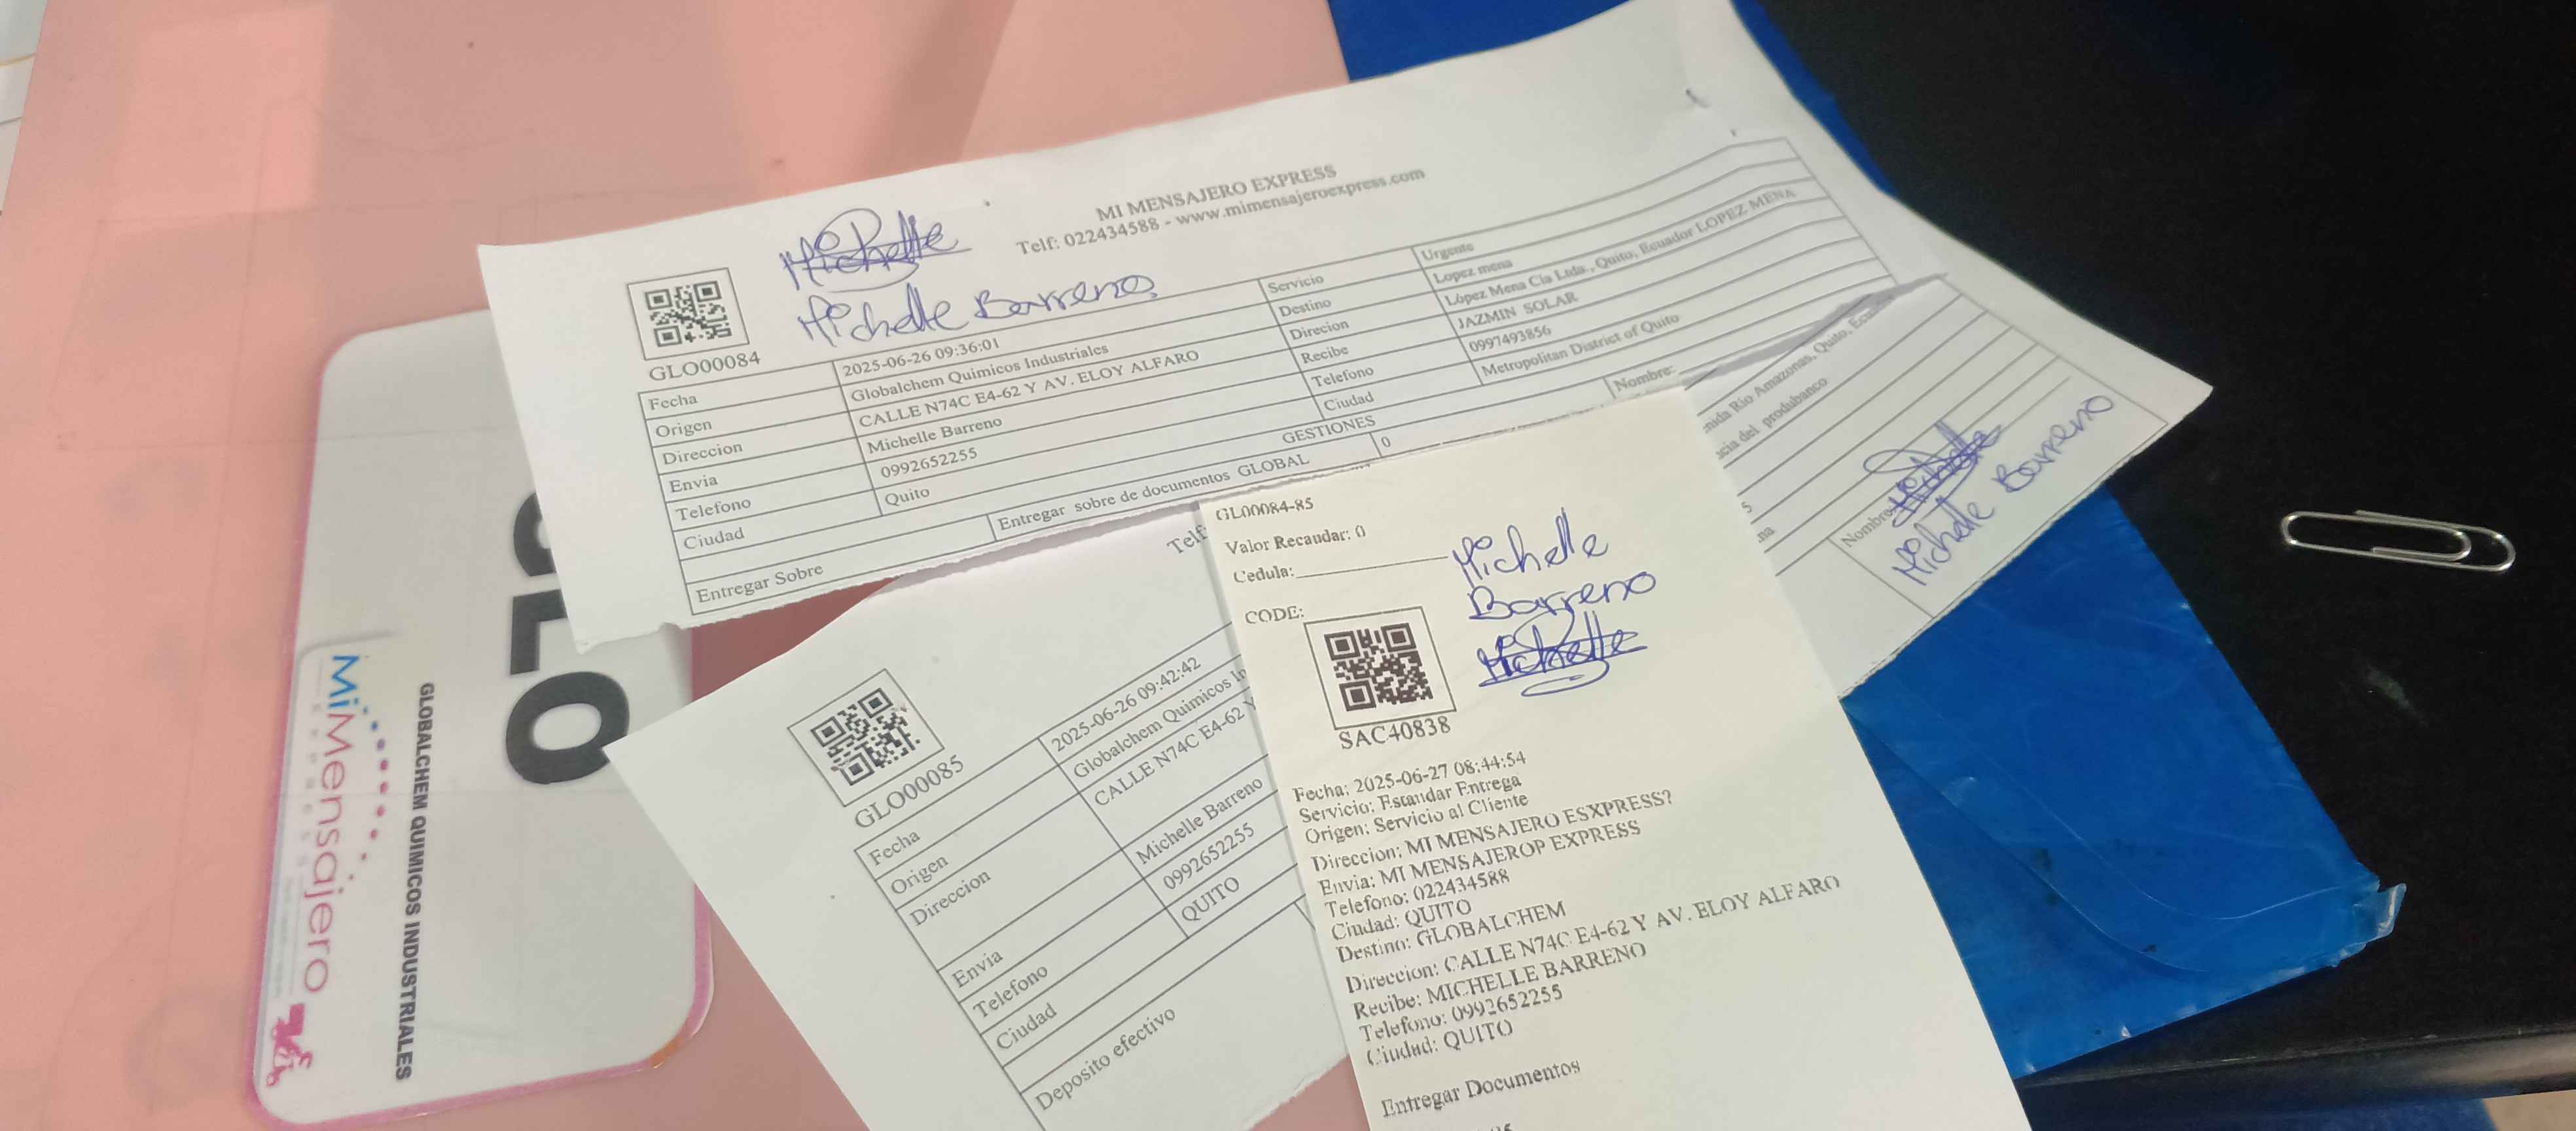 MI MENSAJERO EXPRESS
Telf: 022434588 - www.mimensajeroexpress.com
Michelle
Michelle Barreno
GLO00084
Fecha 2025-06-26 09:36:01
Origen Globalchem Quimicos Industriales
Direccion CALLE N74C E4-62 Y AV. ELOY ALFARO
Envia Michelle Barreno
Telefono 0992652255
Ciudad Quito
Servicio Urgente
Destino Lopez mena
Direcion López Mena Cia Ltda., Quito, Ecuador LOPEZ MENA
Recibe JAZMIN SOLAR
Telefono 0997493856
Ciudad Metropolitan District of Quito
GESTIONES
Entregar Sobre Entregar sobre de documentos GLOBAL 0 Nombre:
Telf:
GLO00085
Fecha 2025-06-26 09:42:42
Origen Globalchem Quimicos In
Direccion CALLE N74C E4-62 Y
Envia Michelle Barreno
Telefono 0992652255
Ciudad QUITO
Deposito efectivo
nida Rio Amazonas, Quito, Ecu
cia del produbanco
5
na
Nombre
Michelle
Michelle Barreno
GL00084-85
Valor Recaudar: 0
Cedula:
Michelle
Barreno
Michelle
CODE:
SAC40838
Fecha: 2025-06-27 08:44:54
Servicio: Estandar Entrega
Origen: Servicio al Cliente
Direccion: MI MENSAJERO ESXPRESS?
Envia: MI MENSAJEROP EXPRESS
Telefono: 022434588
Ciudad: QUITO
Destino: GLOBALCHEM
Direccion: CALLE N74C E4-62 Y AV. ELOY ALFARO
Recibe: MICHELLE BARRENO
Telefono: 0992652255
Ciudad: QUITO
Entregar Documentos
GLO
GLOBALCHEM QUIMICOS INDUSTRIALES
MiMensajero